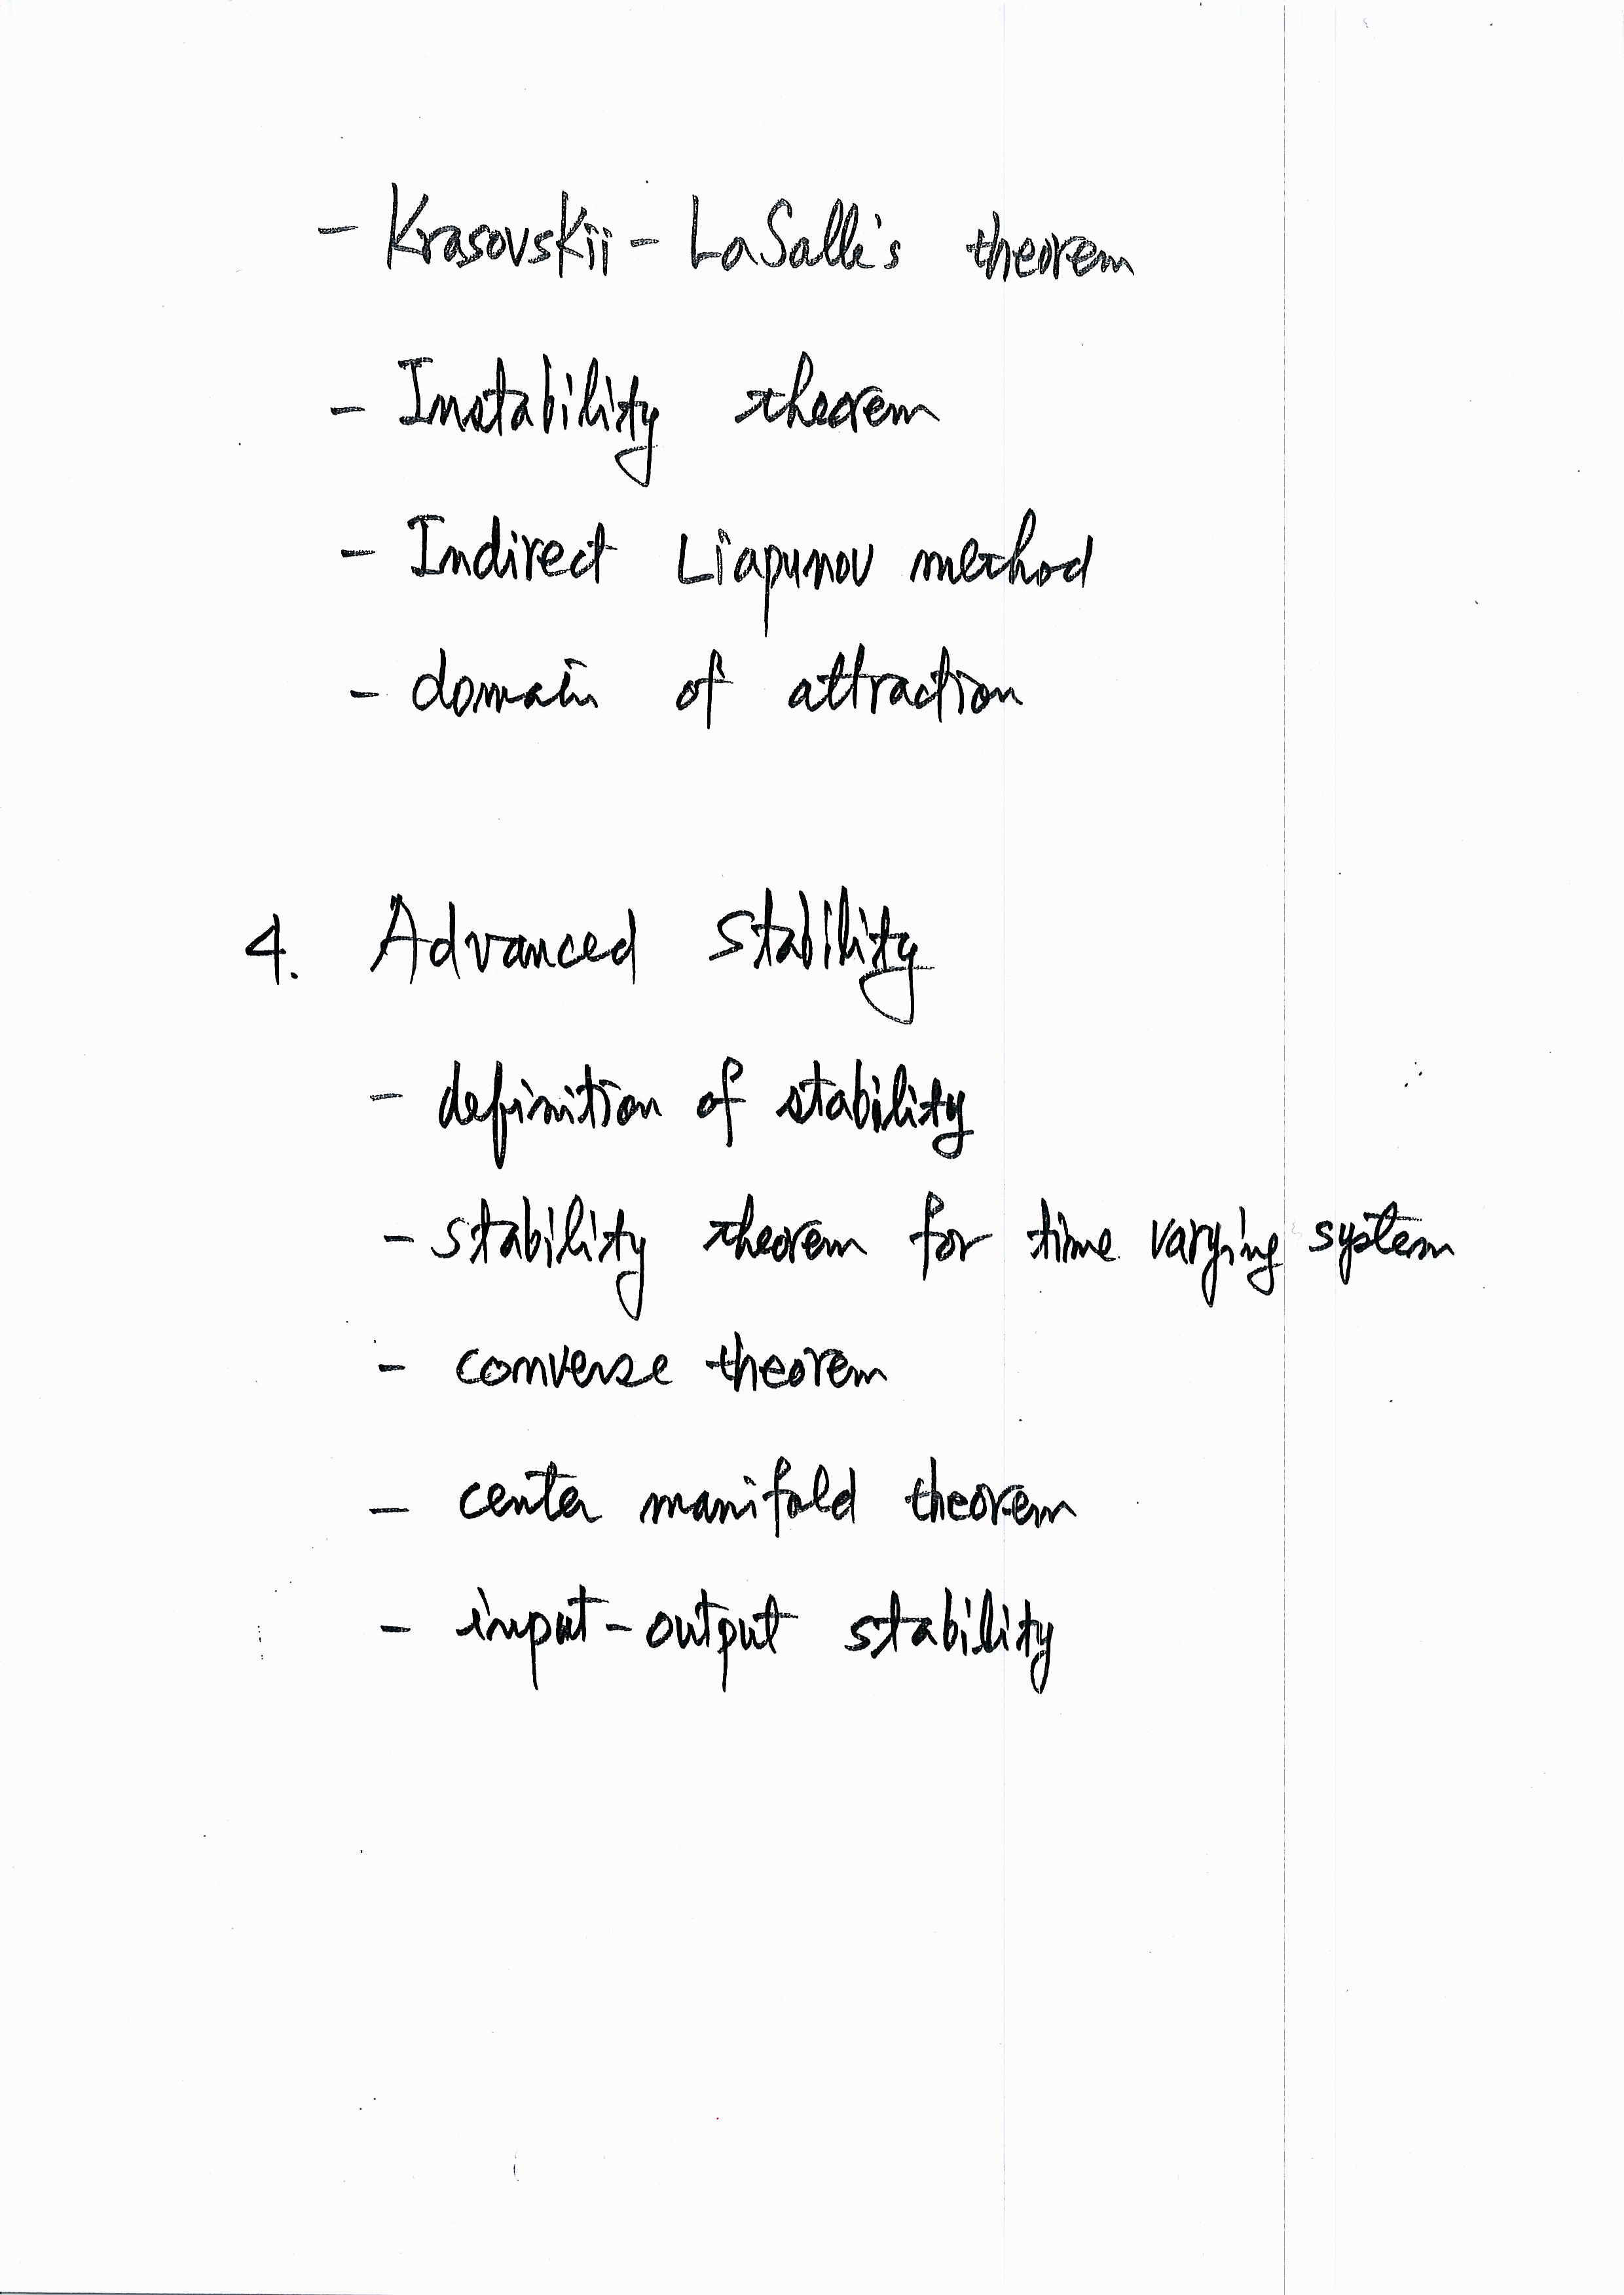 - Krasovskii - LaSalle's theorem
- Instability theorem
- Indirect Liapunov method
- domain of attraction
4. Advanced Stability
- definition of stability
- stability theorem for time varying system
- converse theorem
- center manifold theorem
- input-output stability